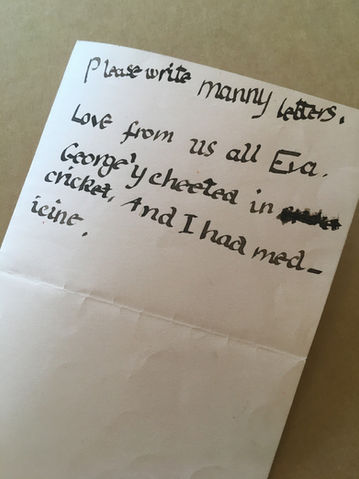 Please write manny letters.
Love from us all Eva.
George'y cheeted in
cricket. And I had med-
icine.